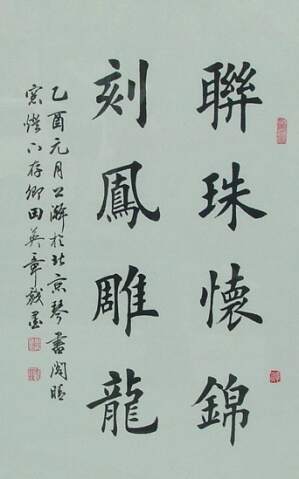 聯珠懷錦
刻鳳雕龍
乙酉元月上澣於北京琴書閣晴
窓燈下存卿田英章戲墨